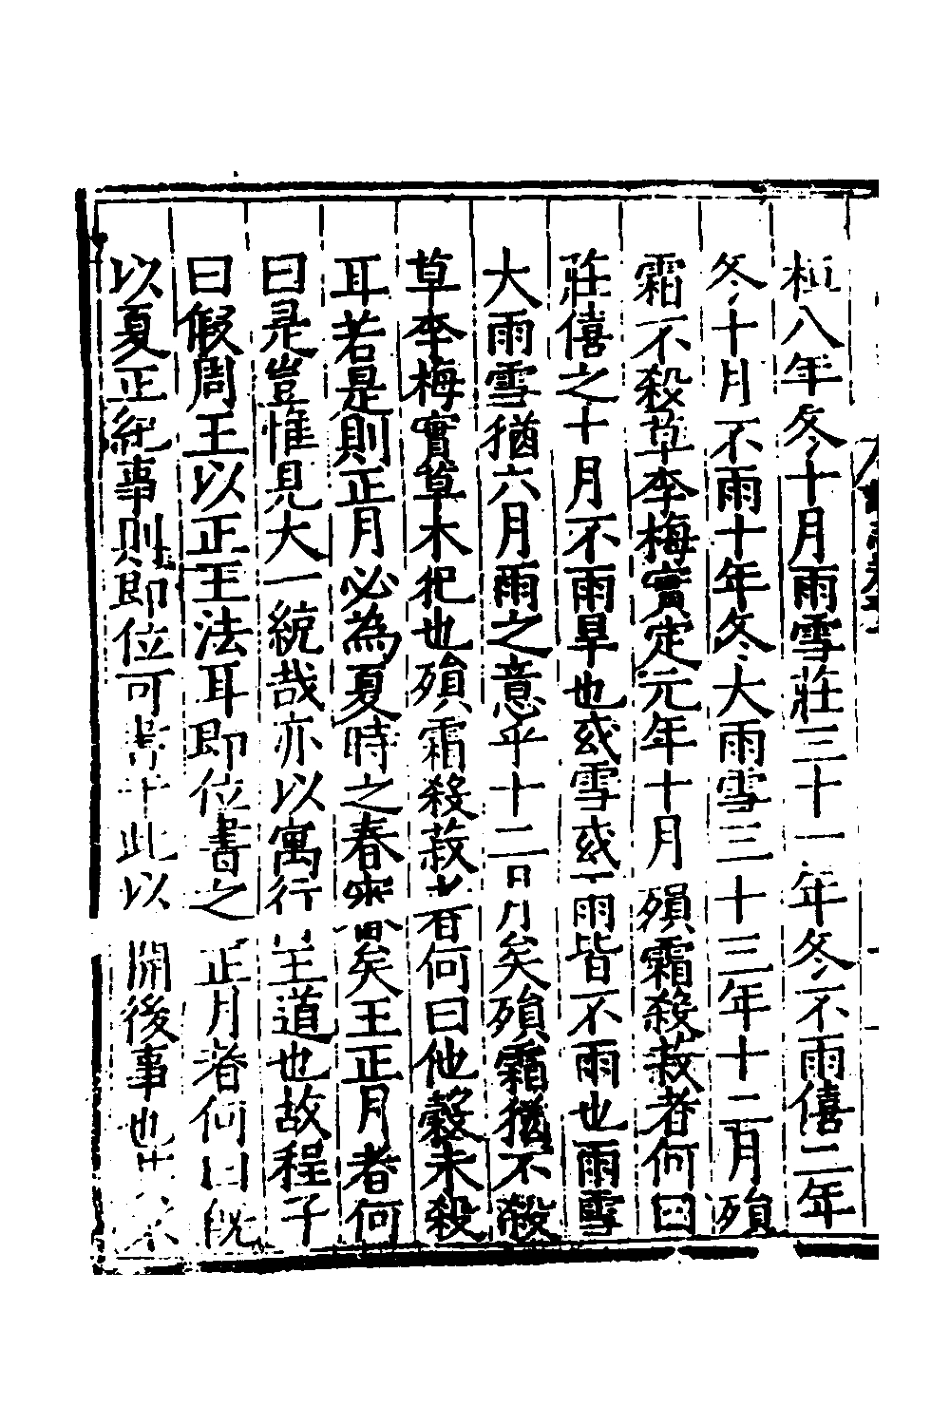 桓八年冬十月雨雪莊三十一年冬不雨僖二年
冬十月不雨十年冬大雨雪三十三年十二月殞
霜不殺草李梅實定元年十月殞霜殺菽者何曰
莊僖之十月不雨旱也或雪或不雨皆不雨也雨雪
大雨雪猶六月雨之意乎十二月矣殞霜猶不殺
草李梅實草木犯也殞霜殺菽者何曰他穀未殺
耳若是則正月必為夏時之春矣王正月者何
曰是豈惟見大一統哉亦以寓行王道也故程子
曰假周王以正王法耳即位書之正月者何曰既
以夏正紀事則即位可書於此以開後事也